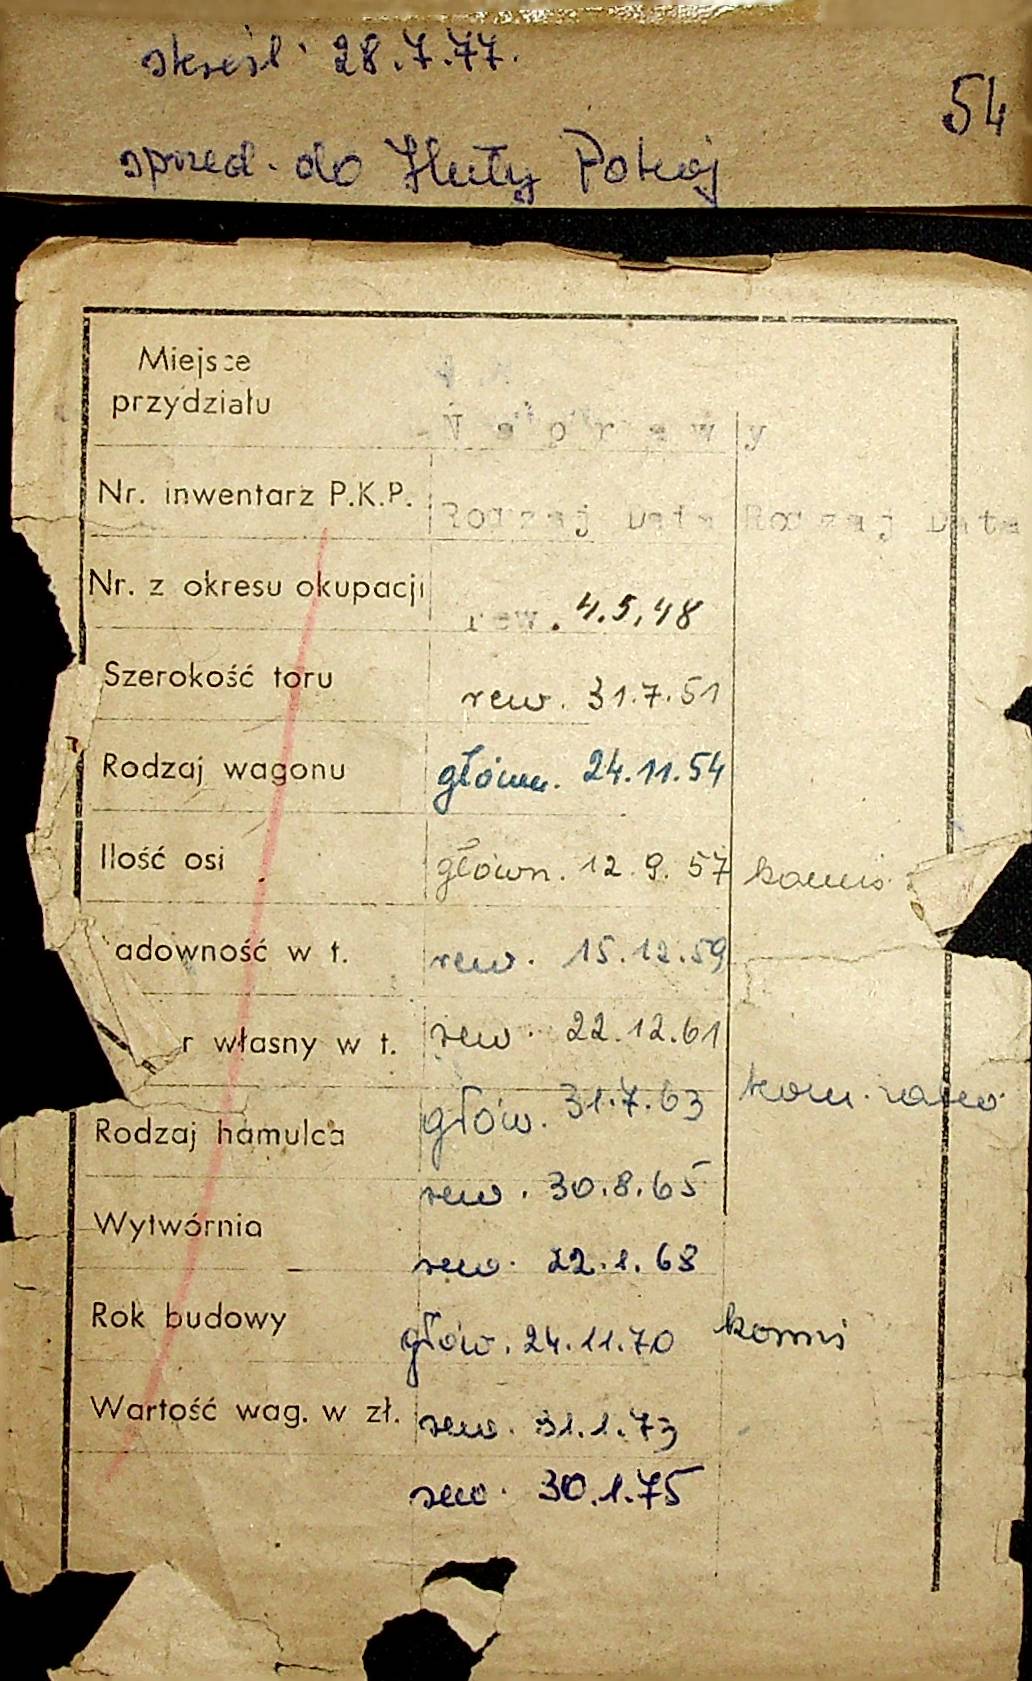 skreśl. 28.7.77.
54
sprzed. do Huty Pokój
Miejsce
przydziału
Naprawy
Nr. inwentarz P.K.P.
Rodzaj Data Rodzaj Data
Nr. z okresu okupacji
rew. 4.5.48
Szerokość toru
rew. 31.7.51
Rodzaj wagonu
główn. 24.11.54
Ilość osi
główn. 12.9.57
adowność w t.
rew. 15.12.59
r własny w t.
rew. 22.12.61
głów. 31.7.63
Rodzaj hamulca
rew. 30.8.65
Wytwórnia
rew. 22.1.68
Rok budowy
głów. 24.11.70 komis
Wartość wag. w zł.
rew. 31.1.73
rew. 30.1.75